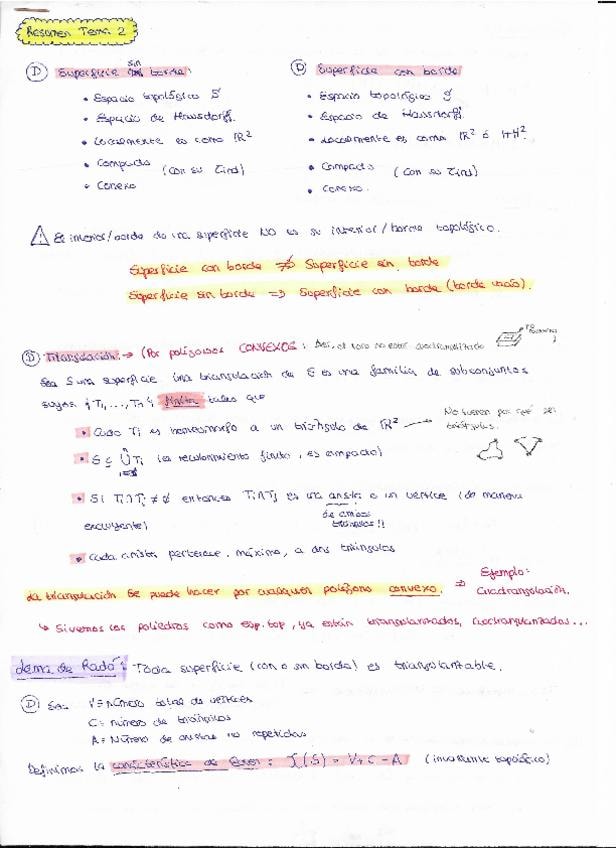 Resumen Tema 2
Ⓓ Superficie sin borde:
• Espacio topológico S
• Espacio de Hausdorff.
• Localmente es como ℝ²
• Compacto (con su Tind)
• Conexo
Ⓓ Superficie con borde
• Espacio topológico S
• Espacio de Hausdorff.
• Localmente es como ℝ² ó ℍ².
• Compacto (con su Tind)
• Conexo.
⚠ El interior/borde de una superficie NO es su interior/borde topológico.
Superficie con borde ⇏ Superficie sin borde
Superficie sin borde ⇒ Superficie con borde (borde vacío).
Ⓓ Triangulación: → (Por polígonos CONVEXOS: el toro no estar cuadrangulizado
Sea S una superficie una triangulación de S es una familia de subconjuntos
suyos {T₁, ..., Tₙ} finita tales que
• Cada Ti es homeomorfo a un triángulo de ℝ² → No tienen por qué ser
triángulos.
• S ⊆ ∪ Ti (es recubrimiento finito, es compacto)
• Si Ti∩Tj ≠ ∅ entonces Ti∩Tj es una arista o un vertice (de manera
de ambos
triángulos!!
excluyente)
• Cada arista pertenece, máximo, a dos triángulos
La triangulación se puede hacer por cualquier polígono convexo. ⇒ Ejemplo:
Cuadrangulación.
↳ Si vemos los poliedros como esp. top, ya están triangulantados, cuadrangulantados...
Lema de Radó: Toda superficie (con o sin borde) es triangulantable.
Ⓓ Sea V = número total de vertices
C = número de triángulos
A = Número de aristas no repetidas
Definimos la característica de Euler: χ(S) = V + C - A (invariante topológico)